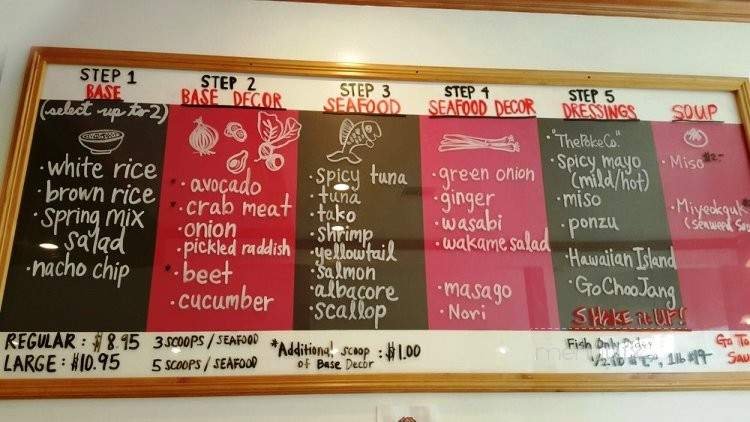 STEP 1
BASE
(select up to 2)
· white rice
· brown rice
· spring mix
salad
· nacho chip
STEP 2
BASE DECOR
* · avocado
* · crab meat
· onion
· pickled raddish
* · beet
· cucumber
STEP 3
SEAFOOD
· spicy tuna
· tuna
· tako
· shrimp
· yellowtail
· salmon
· albacore
· scallop
STEP 4
SEAFOOD DECOR
· green onion
· ginger
· wasabi
· wakame salad
· masago
· Nori
STEP 5
DRESSINGS
· "ThePokeCo."
· spicy mayo
(mild/hot)
· miso
· ponzu
· Hawaiian Island
· GoChooJang
SHake it UP!
SOUP
· Miso $2-
· Miyeokguk
(seaweed
REGULAR : $8.95 3 SCOOPS / SEAFOOD
LARGE : $10.95 5 SCOOPS / SEAFOOD
*Additional scoop : $1.00
of Base Decor
Fish Only Order
1lb $19-
Go To